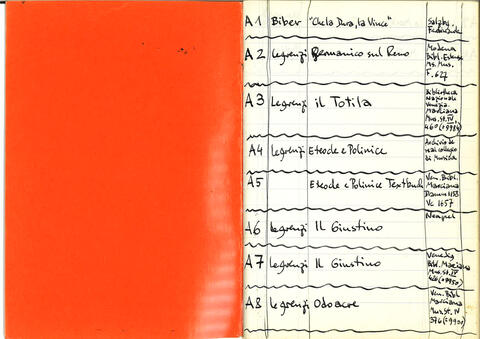 A1 Biber "Chi la Dura, la Vince" Salzbg.
A2 Legrenzi Germanico sul Reno Modena
Bibl. Estense
Ms. Mus.
F. 627
A3 Legrenzi il Totila Bibliotheca
Nazionale
Venezia.
Marciana
Mus. St. IV,
460 (=9984)
A4 Legrenzi Eteocle e Polinice Archivio de
real collegio
di Musica
A5 Eteocle e Polinice Textbuch Ven. Bibl.
Marciana
Dramm 1133
Vc 1657
A6 Legrenzi Il Giustino Neapel
A7 Legrenzi Il Giustino Venedig
Bibl. Marciana
Mus. St. IV
A8 Legrenzi Odoacre Ven. Bibl.
Marciana
Mus. St. IV